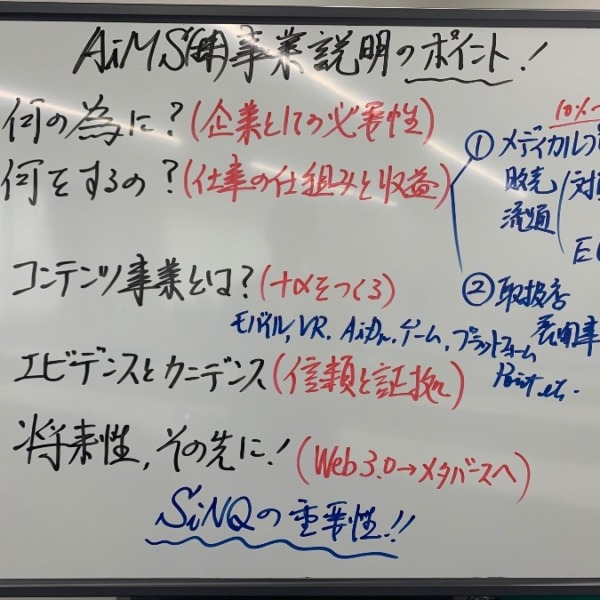 AiMS(株)事業説明のポイント!
何の為に?(企業としての必要性)
何をするの?(仕事の仕組みと収益)
10%~
① メディカル
販売
流通
対
E
コンテンツ事業とは?(+αをつくる)
② 取扱店
展開事
モバイル, VR. ゲーム, プラットフォーム
Point, etc.
エビデンスとカニデンス(信頼と証拠)
将来性, その先に!(Web3.0→メタバースへ)
SiNQの重要性!!